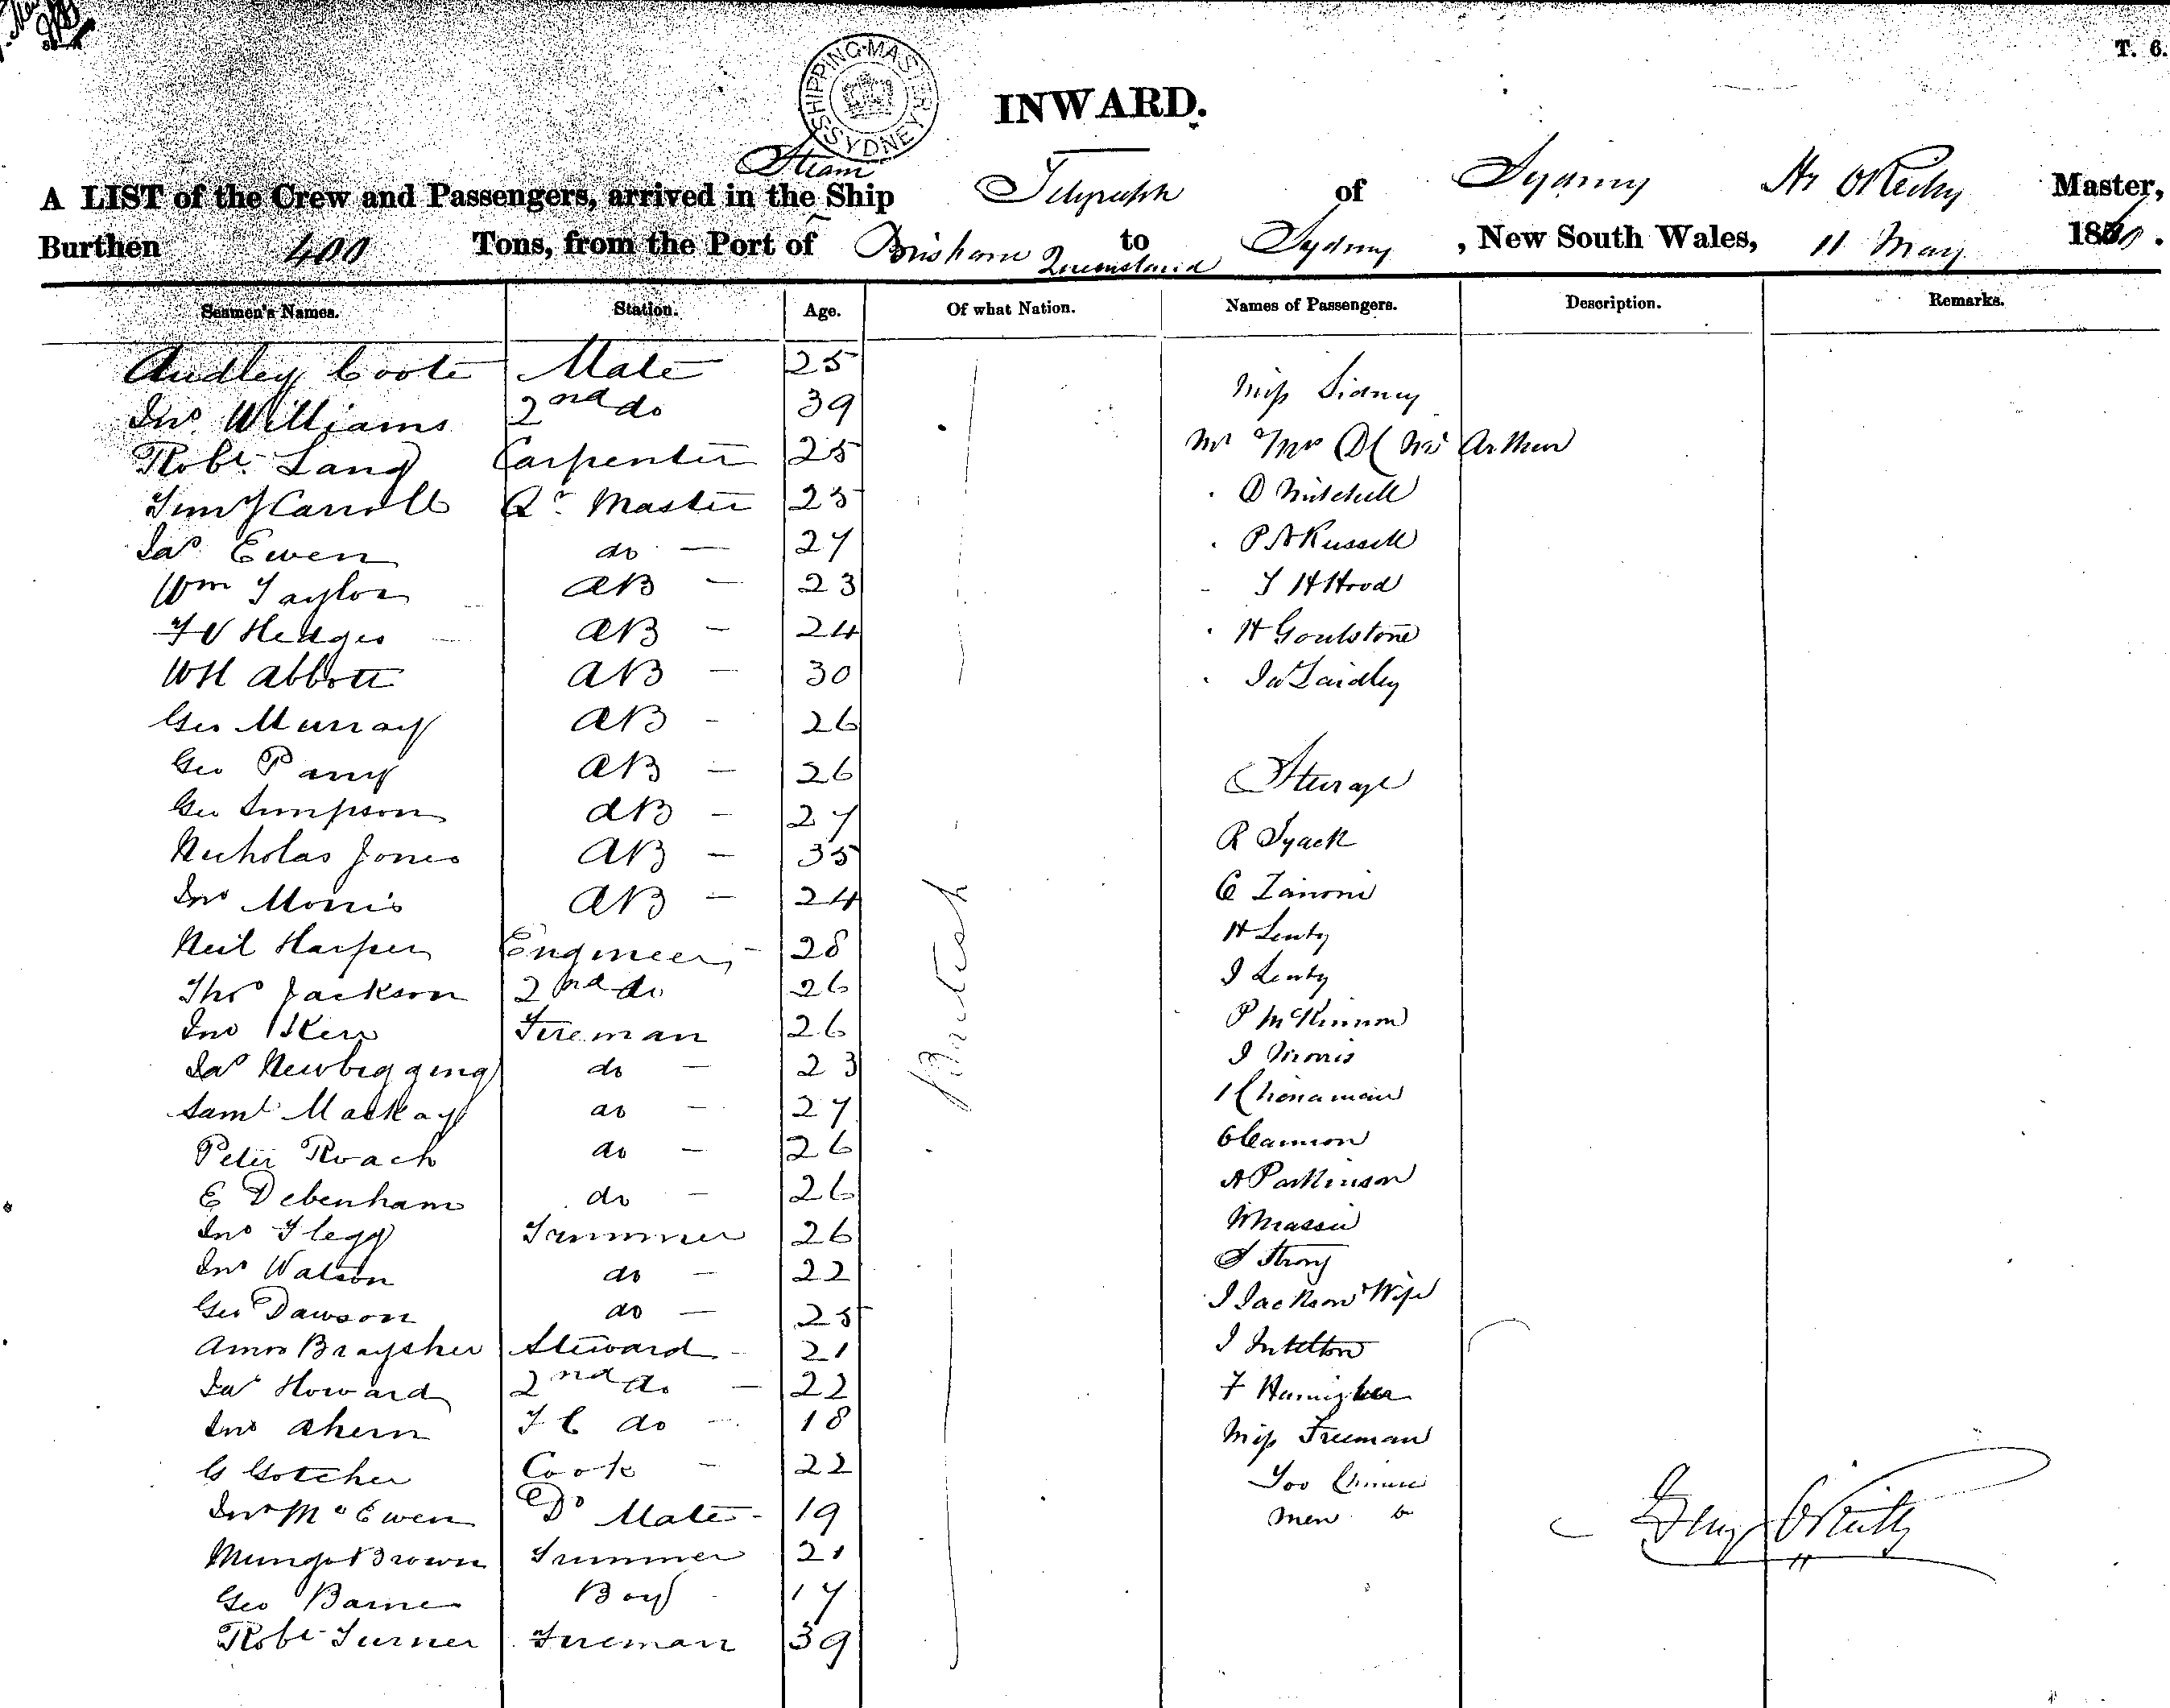 T. 6.
SHIPPING MASTER SYDNEY
INWARD.
Steam
A LIST of the Crew and Passengers, arrived in the Ship Telegraph of Sydney Hy OReilly Master,
Burthen 400 Tons, from the Port of Brisbane Queensland to Sydney, New South Wales, 11 May 1860.
Seamen's Names. Station. Age. Of what Nation. Names of Passengers. Description. Remarks.
Audley Coote Mate 25
Jno Williams 2nd do 39
Robt Lang Carpenter 25
Timy Carroll Qr Master 25
Jas Ewen do 27
Wm Taylor AB 23
F V Hedges AB 24
WH Abbott AB 30
Geo Murray AB 26
Geo Parry AB 26
Geo Simpson AB 27
Nicholas Jones AB 35
Jno Morris AB 24
Neil Harper Engineer 28
Thos Jackson 2nd do 26
Jno Kerr Fireman 26
Jas Newbigging do 23
Saml Mackay do 27
Peter Roach do 26
E Debenham do 26
Jno Flegg Trimmer 26
Jno Watson do 22
Geo Dawson do 25
Amos Braysher Steward 21
Jas Howard 2nd do 22
Jno Ahern F C do 18
G Gotcher Cook 22
Jno McEwen Do Mate 19
Mungo Brown Trimmer 21
Geo Barnes Boy 17
Robt Turner Fireman 39
British
Miss Sidney
Mr & Mrs DC McArthur
D Mitchell
P N Russell
T H Hood
H Goulstone
Jas Laidley
Steerage
R Tyack
C Zanoni
H Lenty
J Lenty
P McKinnon
J Morris
1 Chinaman
C Cannon
A Parkinson
W Massie
J Strong
J Jackson & Wife
F Hannigher
Miss Freeman
Too Chinese
men
Heny OReilly